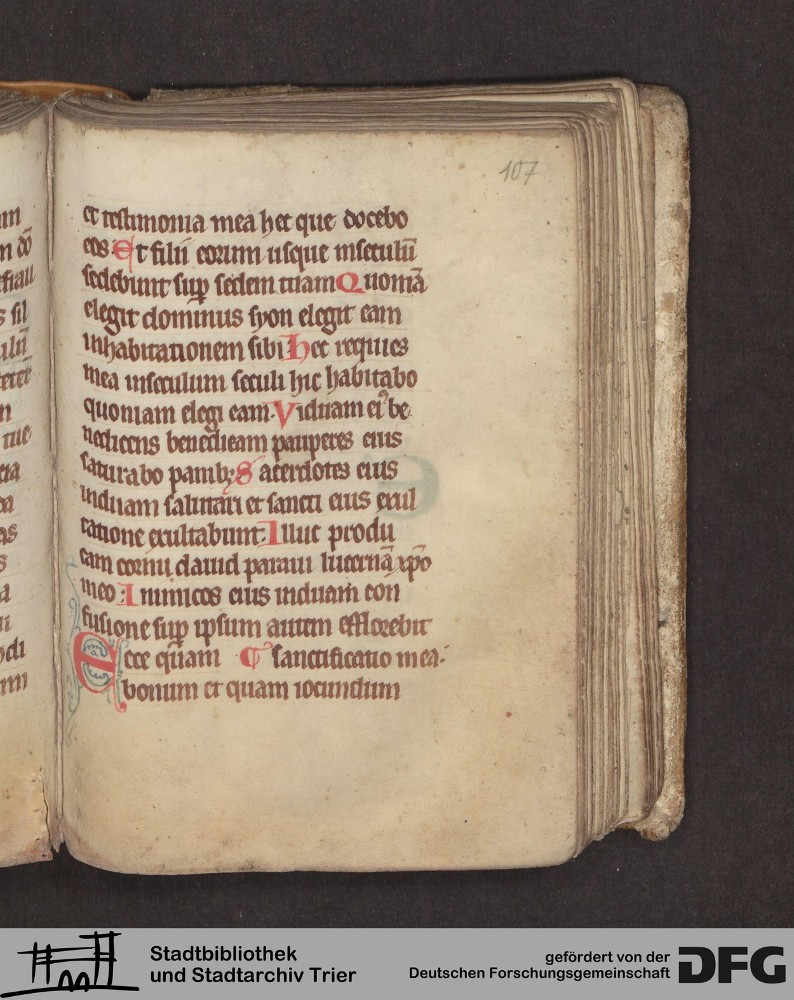 107
et testimonia mea hec que docebo
eos Et filii eorum usque inseculū
sedebunt sup sedem tuam Quoniā
elegit dominus syon elegit eam
inhabitationem sibi Hec requies
mea inseculum seculi hic habitabo
quoniam elegi eam. Viduam eiꝰ be
nedicens benedicam pauperes eius
saturabo panibꝫ Sacerdotes eius
induam salutari et sancti eius exul
tatione exultabunt: Illuc produ
cam cornu dauid paraui lucernā xp̄o
meo: Inimicos eius induam con
fusione sup ipsum autem efflorebit
Ecce quam ¶ sanctificatio mea.
bonum et quam iocundum
Stadtbibliothek
und Stadtarchiv Trier
gefördert von der
Deutschen Forschungsgemeinschaft
DFG